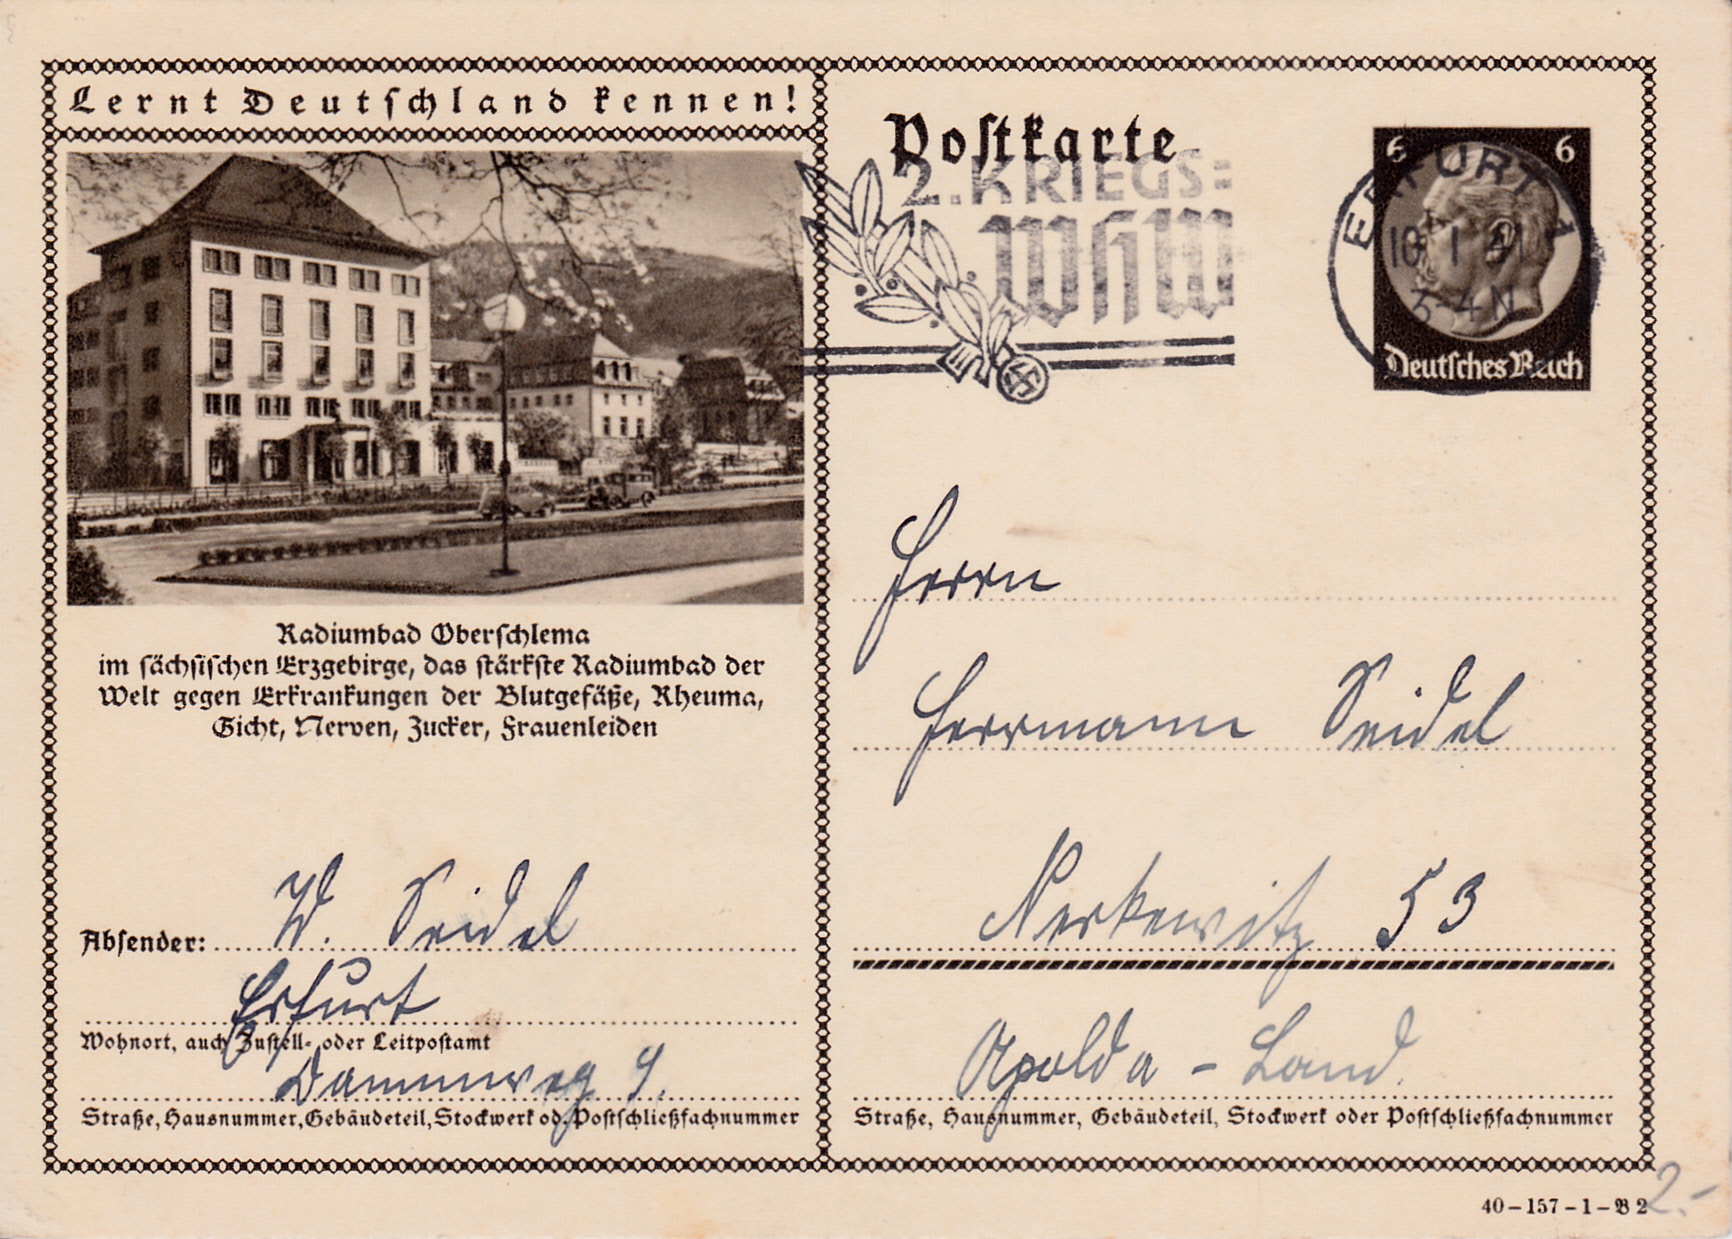 Lernt Deutschland kennen!
Radiumbad Oberschlema
im sächsischen Erzgebirge, das stärkste Radiumbad der
Welt gegen Erkrankungen der Blutgefäße, Rheuma,
Gicht, Nerven, Zucker, Frauenleiden
Absender: W. Seidel
Erfurt
Wohnort, auch Zustell- oder Leitpostamt
Dammweg 9.
Straße, Hausnummer, Gebäudeteil, Stockwerk od. Postschließfachnummer
Postkarte
2. KRIEGS=
WHW
6 6
ERFURT 1
10 1 41
3-4 N
Deutsches Reich
Herrn
Herrmann Seidel
Nerkewitz 53
Apolda - Land.
Straße, Hausnummer, Gebäudeteil, Stockwerk oder Postschließfachnummer
40-157-1-B 2
2.-